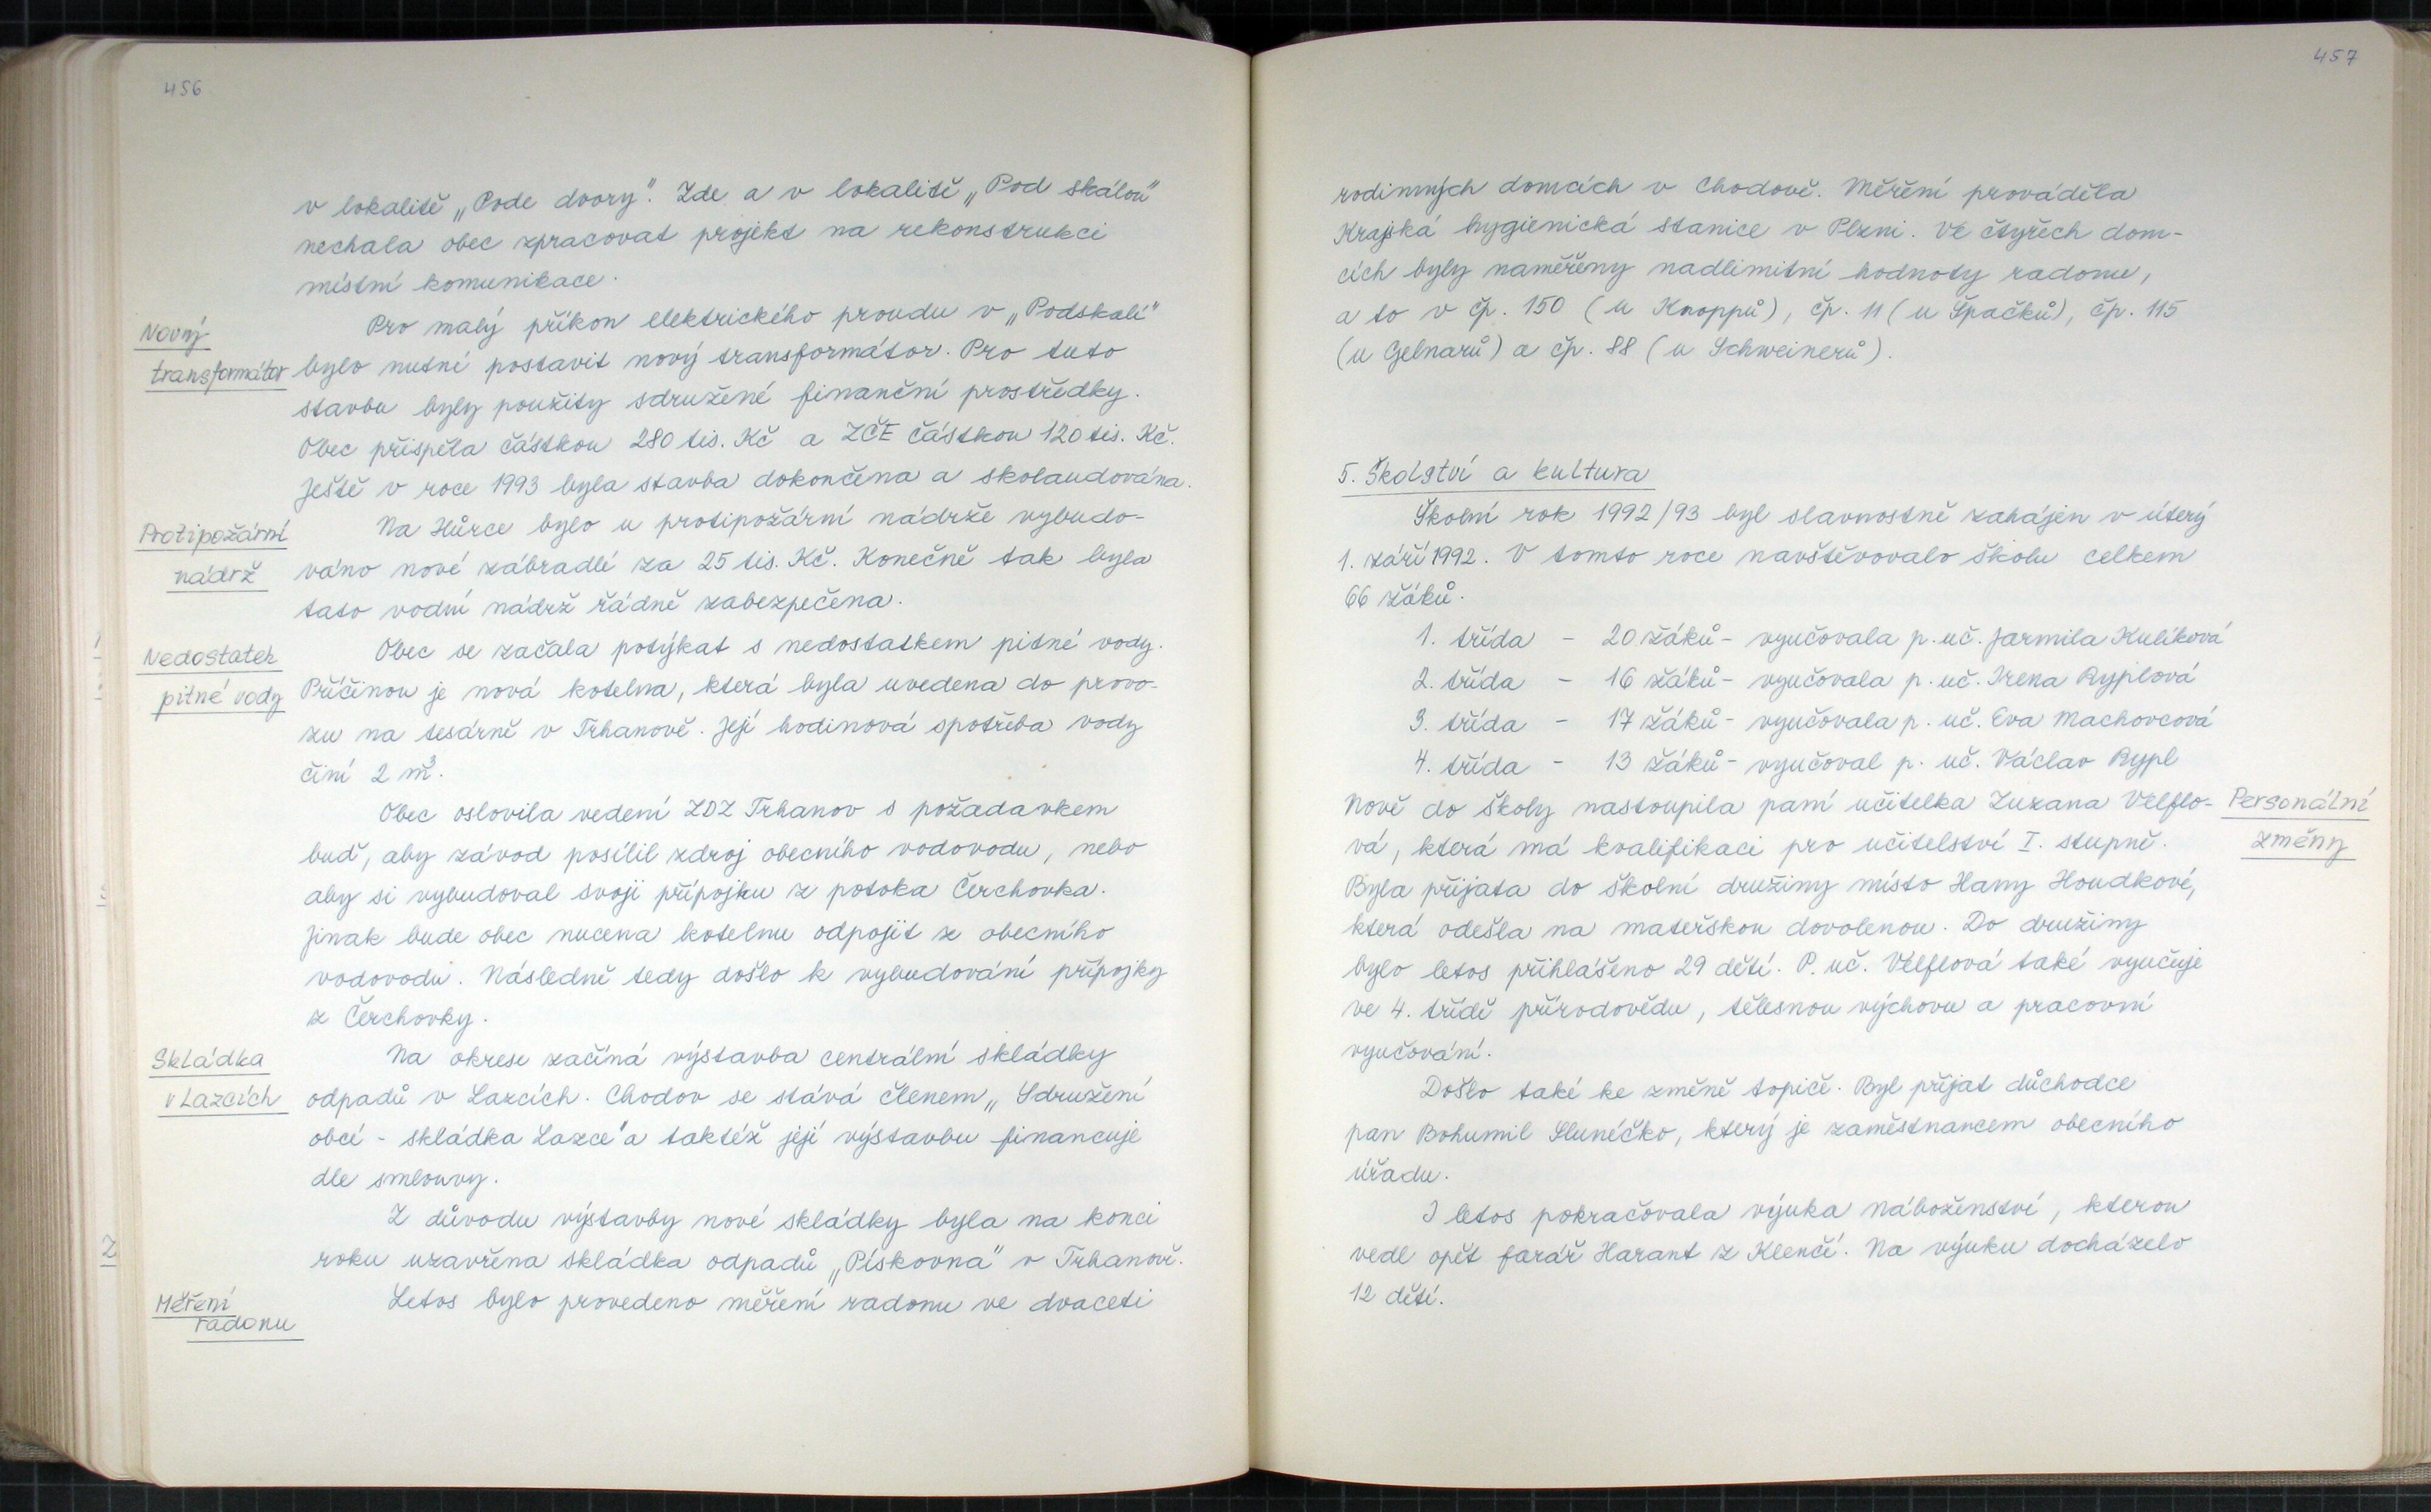 456
v lokalitě „Pode dvory". Zde a v lokalitě „Pod skálou"
nechala obec zpracovat projekt na rekonstrukci
místní komunikace.
Nový
transformátor
Pro malý příkon elektrického proudu v „Podskalí"
bylo nutné postavit nový transformátor. Pro tuto
stavbu byly použity sdružené finanční prostředky.
Obec přispěla částkou 280 tis. Kč a ZČE částkou 120 tis. Kč.
Ještě v roce 1993 byla stavba dokončena a skolaudována.
Protipožární
nádrž
Na Hůrce bylo u protipožární nádrže vybudo-
váno nové zábradlí za 25 tis. Kč. Konečně tak byla
tato vodní nádrž řádně zabezpečena.
Nedostatek
pitné vody
Obec se začala potýkat s nedostatkem pitné vody.
Příčinou je nová kotelna, která byla uvedena do provo-
zu na tesárně v Trhanově. Její hodinová spotřeba vody
činí 2 m³.
Obec oslovila vedení ZDZ Trhanov s požadavkem
buď, aby závod posílil zdroj obecního vodovodu, nebo
aby si vybudoval svoji přípojku z potoka Čerchovka.
Jinak bude obec nucena kotelnu odpojit ze obecního
vodovodu. Následně tedy došlo k vybudování přípojky
z Čerchovky.
Skládka
v Lazcích
Na okrese začíná výstavba centrální skládky
odpadů v Lazcích. Chodov se stává členem „Sdružení
obcí - skládka Lazce" a taktéž její výstavbu financuje
dle smlouvy.
Z důvodu výstavby nové skládky byla na konci
roku uzavřena skládka odpadů „Pískovna" v Trhanově.
Měření
radonu
Letos bylo provedeno měření radonu ve dvaceti
457
rodinných domcích v Chodově. Měření prováděla
Krajská hygienická stanice v Plzni. Ve čtyřech dom-
cích byly naměřeny nadlimitní hodnoty radonu,
a to v čp. 150 (u Knoppů), čp. 11 (u Špačků), čp. 115
(u Gelnarů) a čp. 88 (u Schweinerů).
5. Školství a kultura
Školní rok 1992/93 byl slavnostně zahájen v úterý
1. září 1992. V tomto roce navštěvovalo školu celkem
66 žáků.
1. třída - 20 žáků - vyučovala p. uč. Jarmila Kulíková
2. třída - 16 žáků - vyučovala p. uč. Irena Ryplová
3. třída - 17 žáků - vyučovala p. uč. Eva Machovcová
4. třída - 13 žáků - vyučoval p. uč. Václav Rypl
Personální
změny
Nově do školy nastoupila paní učitelka Zuzana Velflo-
vá, která má kvalifikaci pro učitelství I. stupně.
Byla přijata do školní družiny místo Hany Houdkové,
která odešla na mateřskou dovolenou. Do družiny
bylo letos přihlášeno 29 dětí. P. uč. Velflová také vyučuje
ve 4. třídě přírodovědu, tělesnou výchovu a pracovní
vyučování.
Došlo také ke změně topiče. Byl přijat důchodce
pan Bohumil Slunéčko, který je zaměstnancem obecního
úřadu.
I letos pokračovala výuka náboženství, kterou
vedl opět farář Harant z Klenčí. Na výuku docházelo
12 dětí.